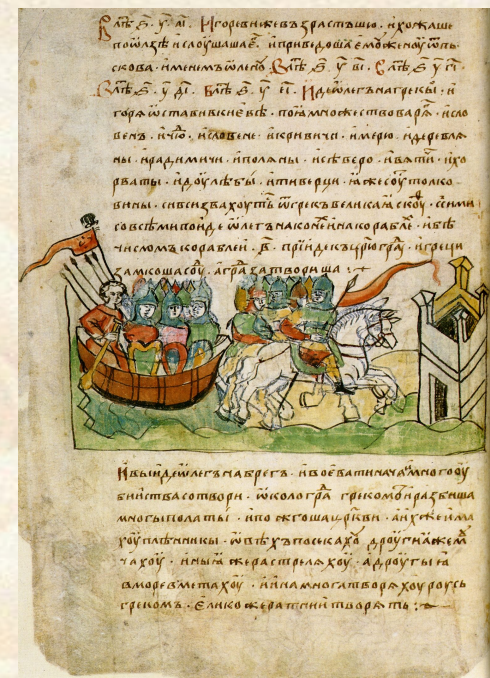 В лѣⷮ ҂ѕ҃ . у҃ . а҃і . Игореви же възрастъшю . и хожаше
по ѡлзѣ и слоушаша еⷢ . и приведоша емоу женоу ѿ пь
скова . именемъ ѡленоу . В лѣⷮ ҂ѕ҃ . у҃ . в҃і . В лѣⷮ ҂ѕ҃ у҃ г҃і
В лѣⷮ ҂ѕ҃ . у҃ д҃і . В лѣⷮ ҂ѕ҃ . у҃ е҃і . Иде ѡлегъ на грекы . и
горѧ ѡстави в киевѣ . поѧ множество варѧ . и сло
венъ . и чюⷣ . и словене . и кривичи . и мерю . и деревлѧ
ны . и радимичи . и полѧны . и северо . и вѧтичи . и хо
рваты . и доулѣбы . и тиверци . ꙗже соуⷮ толко
вины . си вси звахоуть ѿ грекъ великаꙗ скоуⷴ . с сими
со всѣми поиде ѡлегъ на конеⷯ и на кораблеⷯ . и бѣ
числомъ кораблеи . в҃ . прїиде къ црюгрⷣаⷹ . и греци
замкоша соуⷣ . а граⷣ затвориша :~
И выиде ѡлегъ на брегъ . и воевати нача . и много оу
бииства сотвори . ѡколо граⷣ грекомъ . и разбиша
многы полаты . и пожгоша црк҃ви . а иⷯ же има
хоу плѣнникы . ѡвѣхъ посекахоⷹ дроугиа же мⷹ
чахоу . иныꙗ же растрелѧхоу . а дроугыꙗ
в море вметахоу . и ина многа творѧхоу роусь
грекомъ . елико же ратнии творѧть :~